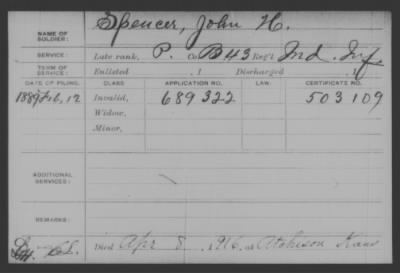 NAME OF SOLDIER: Spencer, John H.
SERVICE: Late rank, P. Co. B 43 Reg't Ind. Inf.
TERM OF SERVICE: Enlisted , 1 Discharged , 1
DATE OF FILING. CLASS APPLICATION NO. LAW. CERTIFICATE NO.
1889 Feb. 12 Invalid, 689322 503109
Widow,
Minor,
ADDITIONAL SERVICES:
REMARKS:
Died Apr 8, 1916, at Atchison Kans